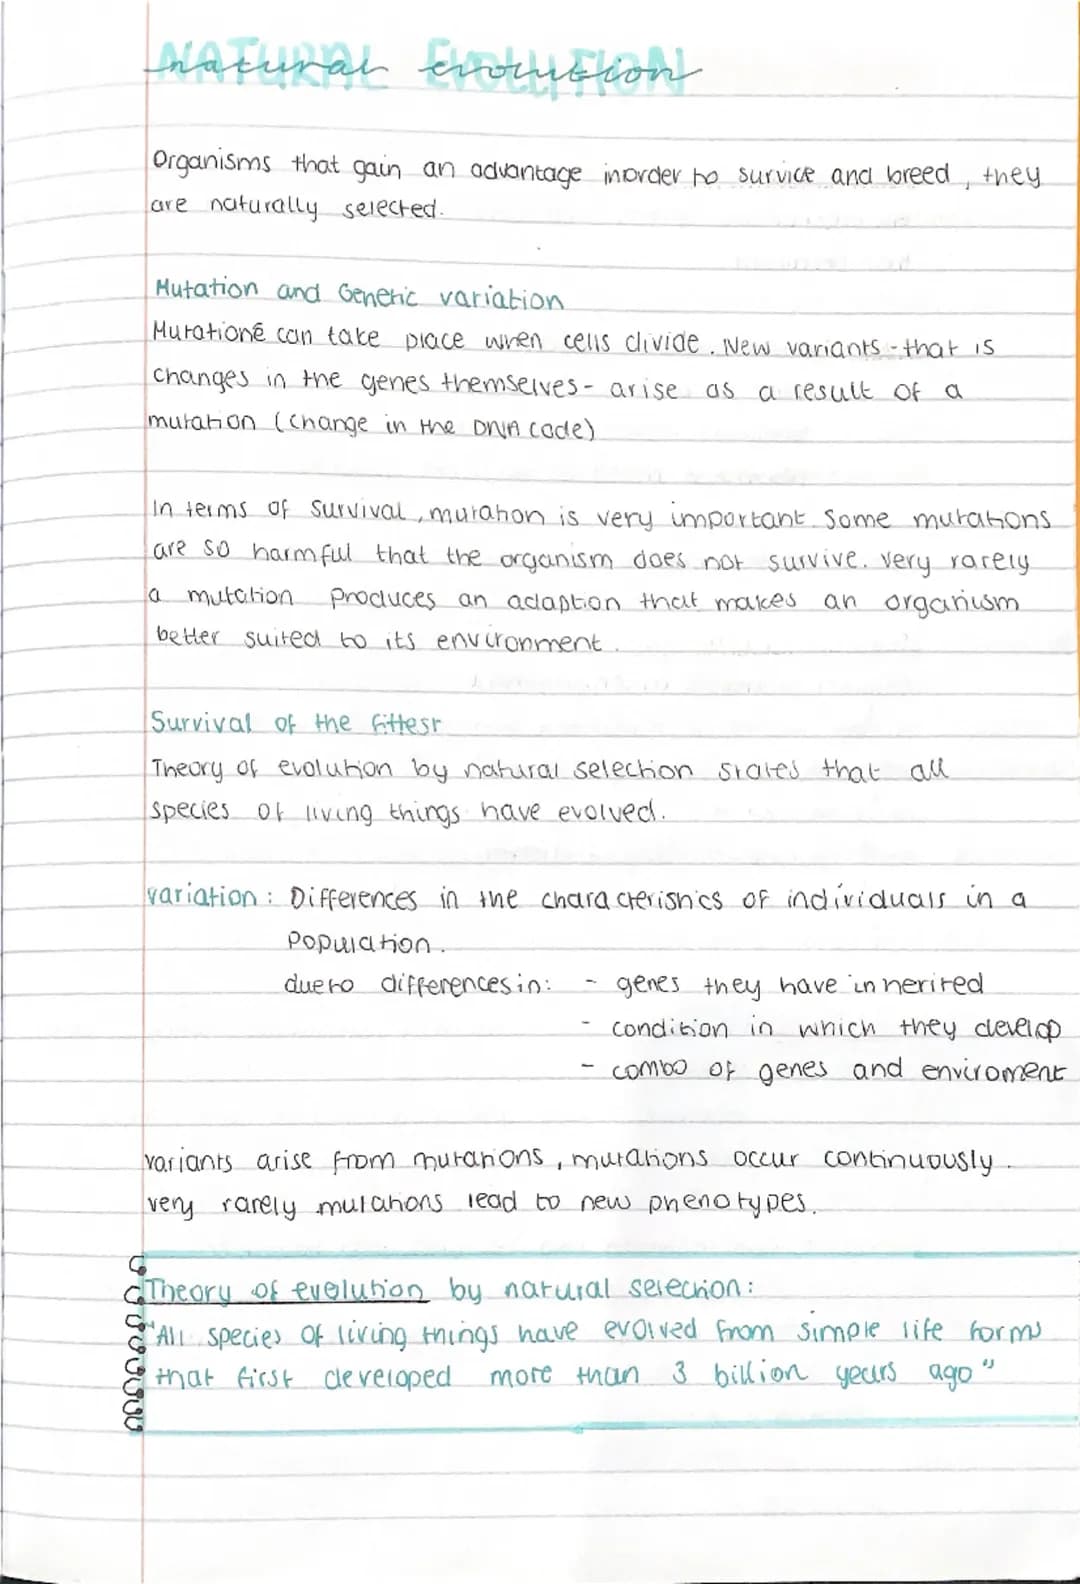 NATURAL EVOLUTION
natural evolution
Organisms that gain an advantage inorder to survice and breed, they
are naturally selected.
Mutation and Genetic variation
Mutations can take place when cells divide. New variants - that is
changes in the genes themselves - arise as a result of a
mutation (change in the DNA code)
In terms of survival, mutation is very important. Some mutations
are so harmful that the organism does not survive. Very rarely
a mutation produces an adaption that makes an organism
better suited to its environment.
Survival of the fittest
Theory of evolution by natural selection states that all
species of living things have evolved.
variation: Differences in the characteristics of individuals in a
population.
due to differences in: - genes they have inherited
- condition in which they develop
- combo of genes and enviroment
variants arise from mutations, mutations occur continuously.
very rarely mutations lead to new phenotypes.
Theory of evolution by natural selection:
"All species of living things have evolved from simple life forms
that first developed more than 3 billion years ago"